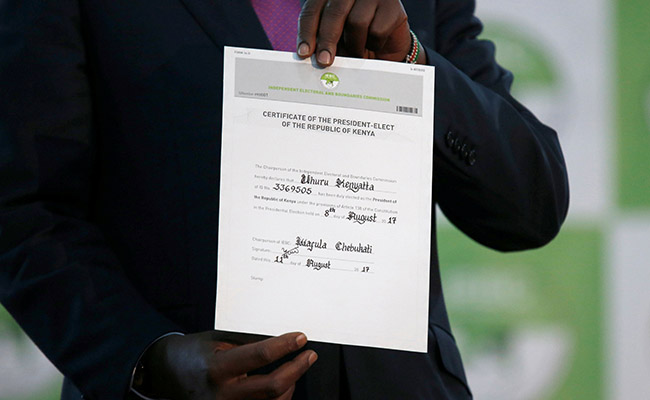 INDEPENDENT ELECTORAL AND BOUNDARIES COMMISSION
CERTIFICATE OF THE PRESIDENT-ELECT
OF THE REPUBLIC OF KENYA
The Chairperson of the Independent Electoral and Boundaries Commission
hereby declares that Uhuru Kenyatta
of ID No 3369505 has been duly elected as the President of
the Republic of Kenya under the provisions of Article 138 of the Constitution
in the Presidential Election held on 8th day of August 20 17
Chairperson of IEBC Wafula Chebukati
Signature
Dated this 11th day of August 20 17
Stamp